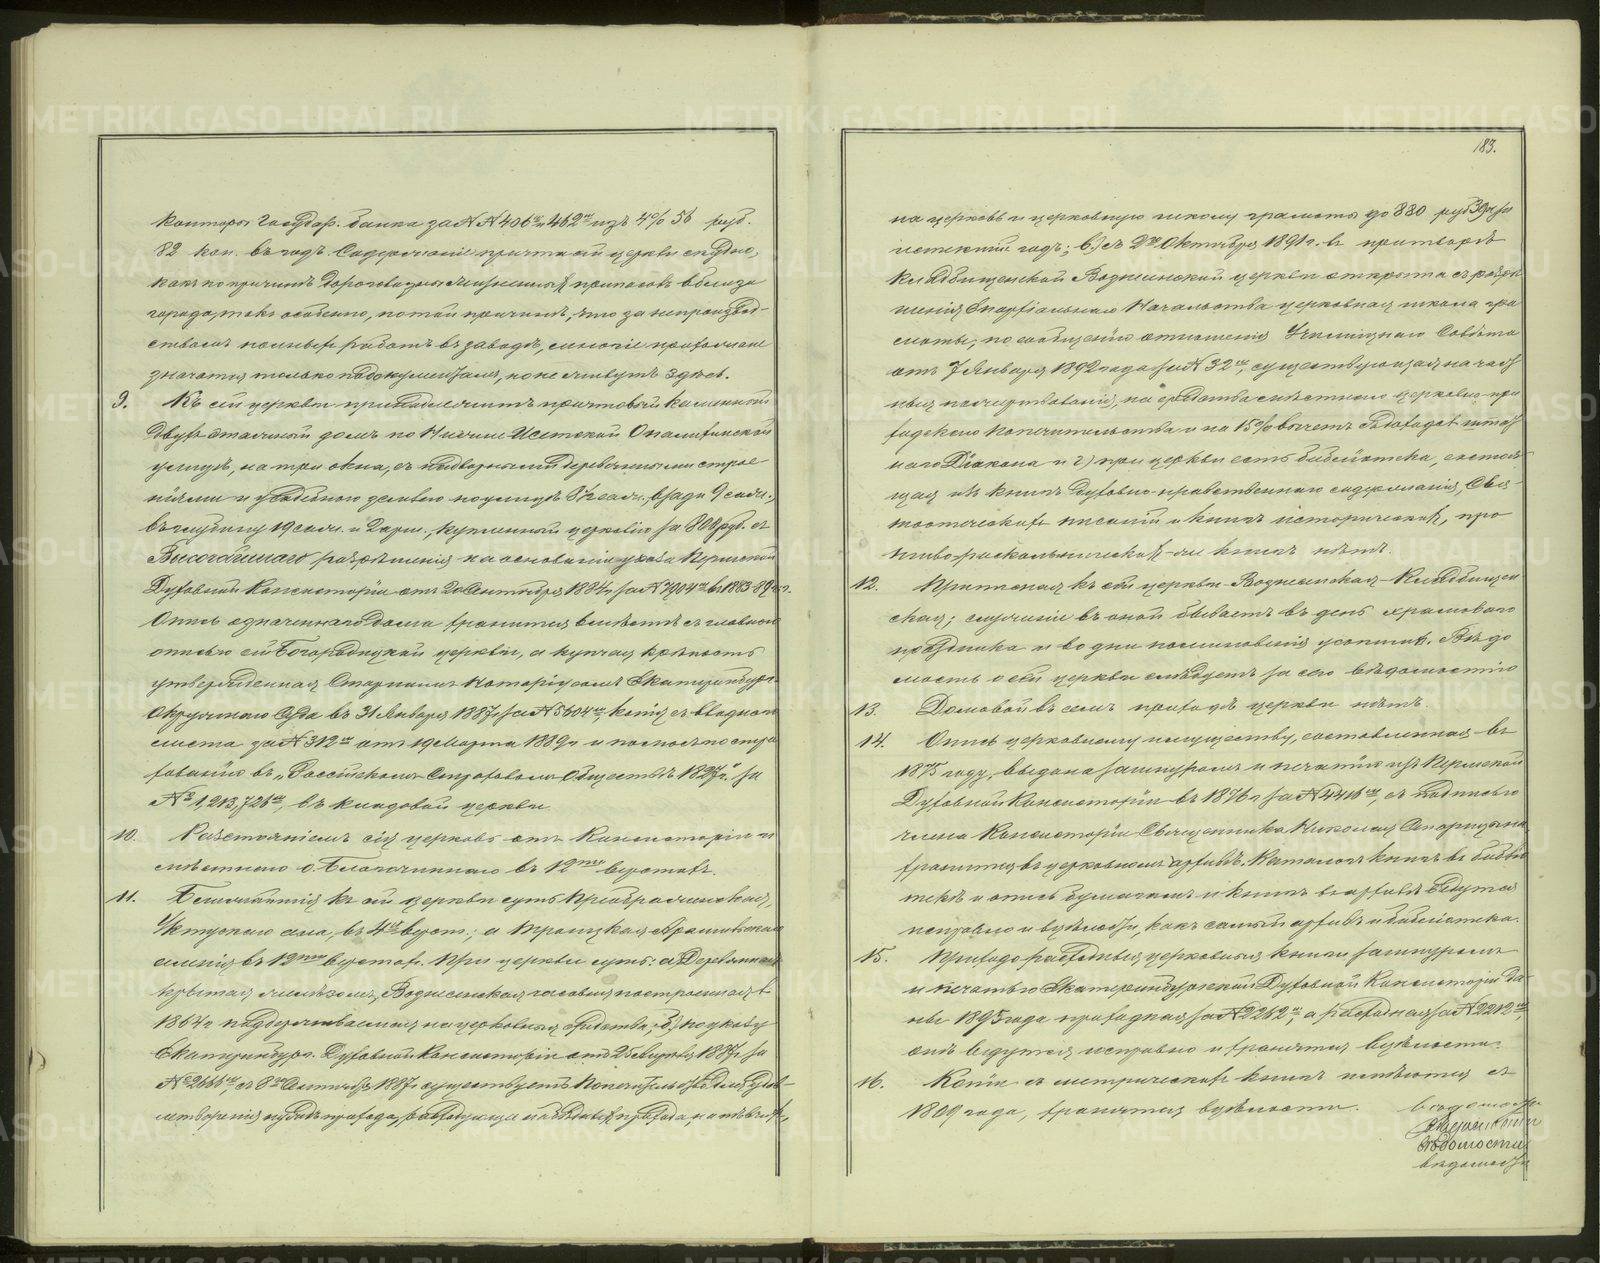 конторы Государ. банка за №№ 406 и 462 изъ 4% 56 руб.
82 коп. въ годъ. Содержаніе причта сей церкви скудно,
какъ по причинѣ дороговизны жизненныхъ припасовъ вблизи
города, такъ особенно, по той причинѣ, что за непроизвод-
ствомъ полныхъ работъ въ заводѣ, многіе прихожане
значатся только по документамъ, но не живутъ здѣсь.
9. Къ сей церкви принадлежитъ причтовый каменный
двухъэтажный домъ по Нижне Исетской
улицѣ, на три окна, съ надворными деревянными строе-
ніями и усадебною землею по улицѣ 8½ саж., взади 9 саж.,
въ глубину 19 саж. и 2 арш., купленный церковію за 808 руб. съ
Высочайшаго разрѣшенія на основаніи указа Пермской
Духовной Консисторіи отъ 20 Сентября 1884 г. за № 7904
Опись означеннаго дома хранится вмѣстѣ съ главною
описью сей Богородицкой церкви, а купчая крѣпость
утвержденная Старшимъ Нотаріусомъ Екатеринбург.
Окружнаго Суда въ 31 Января 1887 г. за № 5604, копія съ вводнаго
листа за № 312 отъ 19 Марта 1889 г. и полисъ по стра-
хованію въ „Россійскомъ Страховомъ Обществѣ 1827 г." за
№ 1,213,726, въ кладовой церкви.
10. Разстояніемъ сія церковь отъ Консисторіи и
мѣстнаго о. Благочиннаго въ 12 верстахъ.
11. Ближайшія къ сей церкви суть Преображенская,
Уктусскаго села, въ 4 верст.; а Троицкая Арамильская
въ 12 верстах. При церкви суть: а) Деревянная
крытая желѣзомъ, Вознесенская часовня построенная въ
1864 г. поддерживаемая на церковныя средства; б) по указу
Екатеринбург. Духовной Консисторіи отъ 25 Августа 1887 г. за
№ 2666, съ 8 Сентября 1887 г. существуетъ Попечительство для удов-
летворенія нуждъ прихода,
183.
на церковь и церковную школу грамоты до 880 руб 39 к за
истекшій годъ; в) съ 2 Октября 1891 г. въ притворѣ
Кладбищенской Вознесенской церкви открыта съ разрѣ-
шенія Епархіальнаго Начальства церковная школа гра-
моты, по сообщенію отношенія Училищнаго Совѣта
отъ 7 Января 1892 года за № 32, существующая на част-
ныя пожертвованія, на средства мѣстнаго церковно-при-
ходскаго попечительства и на 15% вычетъ доходовъ штат-
наго Діакона и г) при церкви есть библіотека, состоя-
щая изъ книгъ духовно-нравственнаго содержанія, Свя-
тоотеческихъ писаній и книгъ историческихъ, про-
тиво-раскольническихъ же книгъ нѣтъ.
12. Приписная къ сей церкви Вознесенская Кладбищен-
ская; служеніе въ оной бываетъ въ день храмоваго
праздника и во дни поминовенія усопшихъ. Вѣдо-
мость о сей церкви слѣдуетъ за сею вѣдомостію
13. Домовой въ семъ приходѣ церкви нѣтъ.
14. Опись церковному имуществу, составленная въ
1875 году, выдана за шнуромъ и печатію изъ Пермской
Духовной Консисторіи въ 1876 г. за № 4416, съ подписью
члена Консисторіи Священника Николая
хранится въ церковномъ архивѣ. Каталогъ книгъ въ библіо-
текѣ и опись бумагамъ и книгъ въ архивѣ ведутся
исправно и въ цѣлости, какъ самый архивъ и библіотека.
15. Приходо расходныя церковныя книги за шнуромъ
и печатью Екатеринбургской Духовной Консисторіи да-
ны 1895 года приходная за № 2262, а расходная за № 2212,
онѣ ведутся исправно и хранятся въ цѣлости.
16. Копіи съ метрическихъ книгъ имѣются съ
1809 года, хранятся въ цѣлости.
вѣдомости